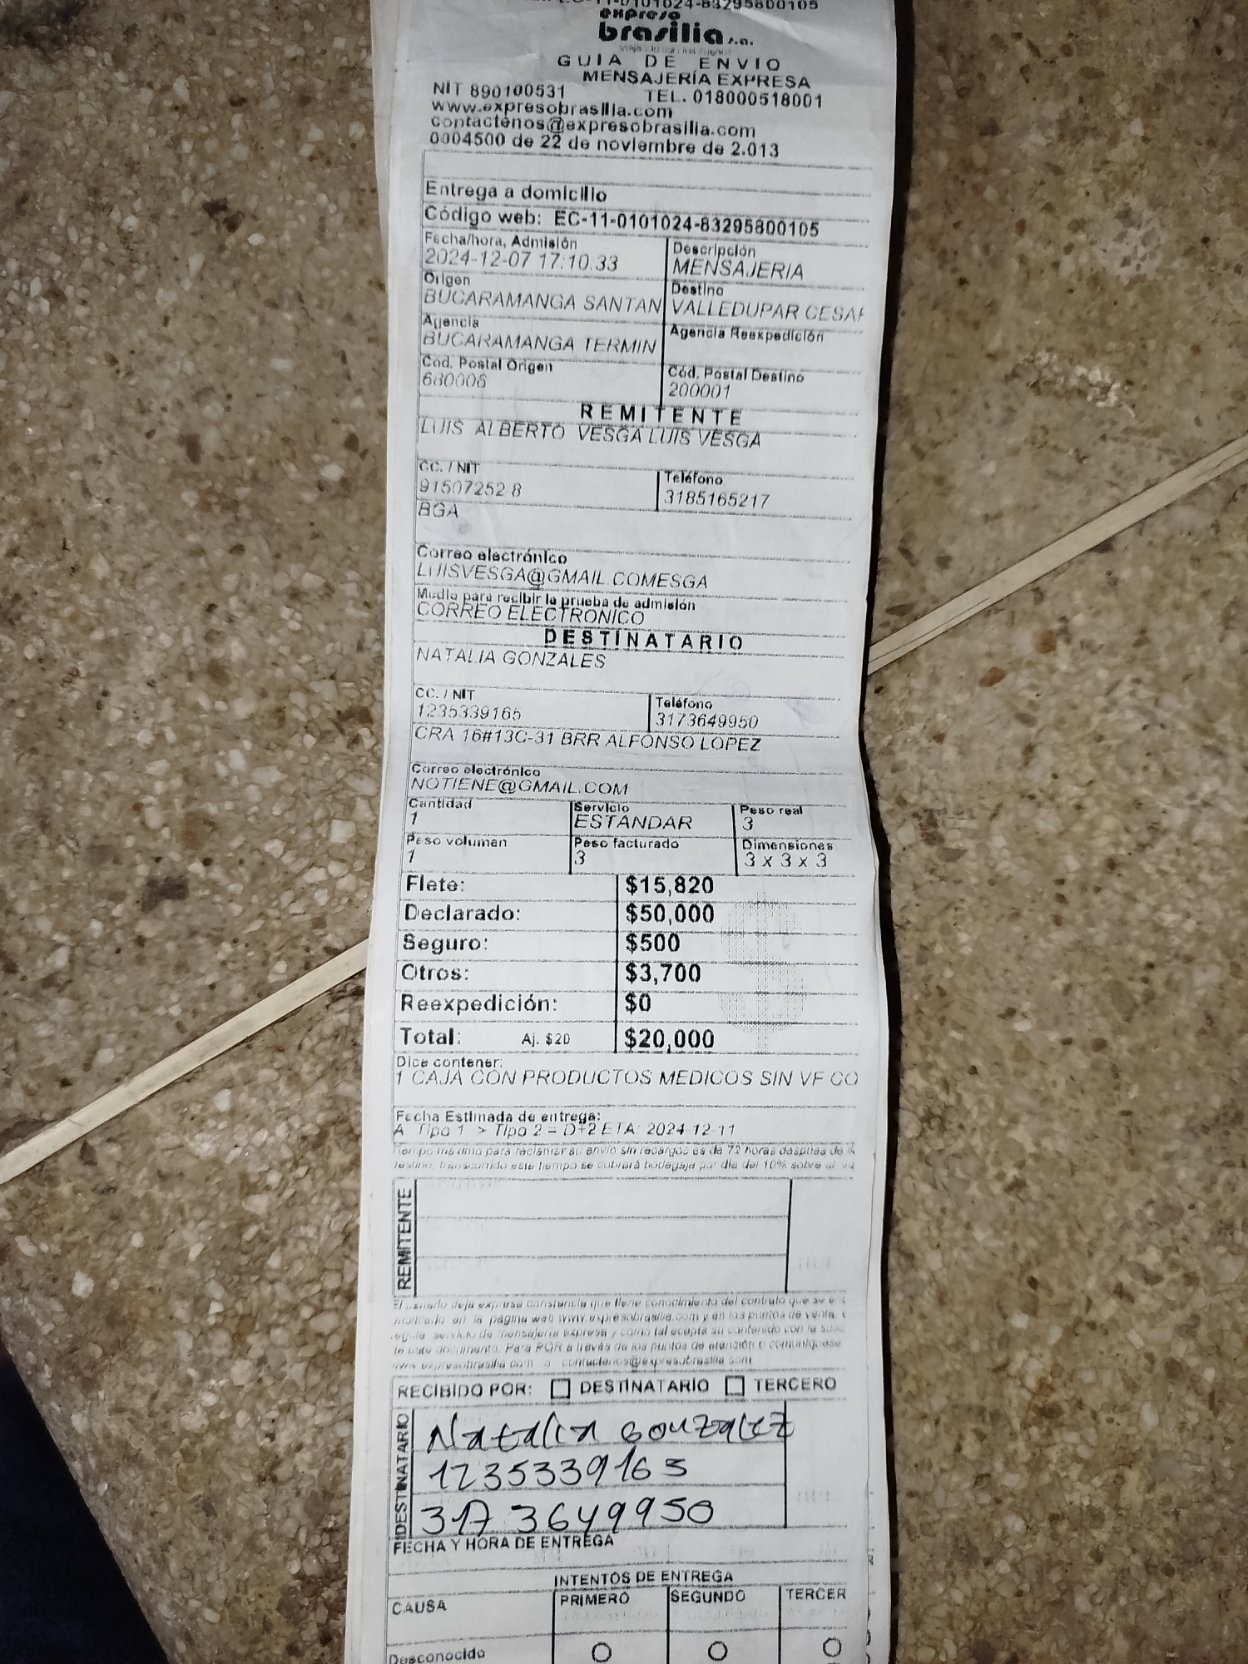 EC-11-0101024-83295800105
expreso
brasilia s.a.
GUIA DE ENVIO
MENSAJERÍA EXPRESA
NIT 890100531 TEL. 018000518001
www.expresobrasilia.com
contactenos@expresobrasilia.com
0004500 de 22 de noviembre de 2.013
Entrega a domicilio
Código web: EC-11-0101024-83295800105
Fecha/hora, Admisión Descripción
2024-12-07 17:10.33 MENSAJERIA
Origen Destino
BUCARAMANGA SANTAN VALLEDUPAR CESAR
Agencia Agencia Reexpedición
BUCARAMANGA TERMIN
Cód. Postal Origen Cód. Postal Destino
680006 200001
REMITENTE
LUIS ALBERTO VESGA LUIS VESGA
CC. / NIT Teléfono
91507252 8 3185165217
BGA
Correo electrónico
LUISVESGA@GMAIL.COMESGA
Medio para recibir la prueba de admisión
CORREO ELECTRONICO
DESTINATARIO
NATALIA GONZALES
CC. / NIT Teléfono
1235339165 3173649950
CRA 16#13C-31 BRR ALFONSO LOPEZ
Correo electrónico
NOTIENE@GMAIL.COM
Cantidad Servicio Peso real
1 ESTANDAR 3
Peso volumen Peso facturado Dimensiones
1 3 3 x 3 x 3
Flete: $15,820
Declarado: $50,000
Seguro: $500
Otros: $3,700
Reexpedición: $0
Total: Aj. $20 $20,000
Dice contener:
1 CAJA CON PRODUCTOS MEDICOS SIN VF CO
Fecha Estimada de entrega:
A Tipo 1 > Tipo 2 = D+2 ETA: 2024-12-11
Tiempo máximo para reclamar su envío sin recargos es de 72 horas después de
destino, transcurrido este tiempo se cobrará bodegaje por día del 10% sobre el
REMITENTE
El usuario deja expresa constancia que tiene conocimiento del contrato que se
publicado en la página web www.expresobrasilia.com y en los puntos de venta,
regula servicio de mensajería expresa y como tal acepta su contenido con la
de este documento. Para PQR a través de los puntos de atención o comuníquese
www.expresobrasilia.com o contactenos@expresobrasilia.com
RECIBIDO POR: DESTINATARIO TERCERO
DESTINATARIO
Natalia Gonzalez
1235339165
317 3649950
FECHA Y HORA DE ENTREGA
INTENTOS DE ENTREGA
CAUSA PRIMERO SEGUNDO TERCER
Desconocido